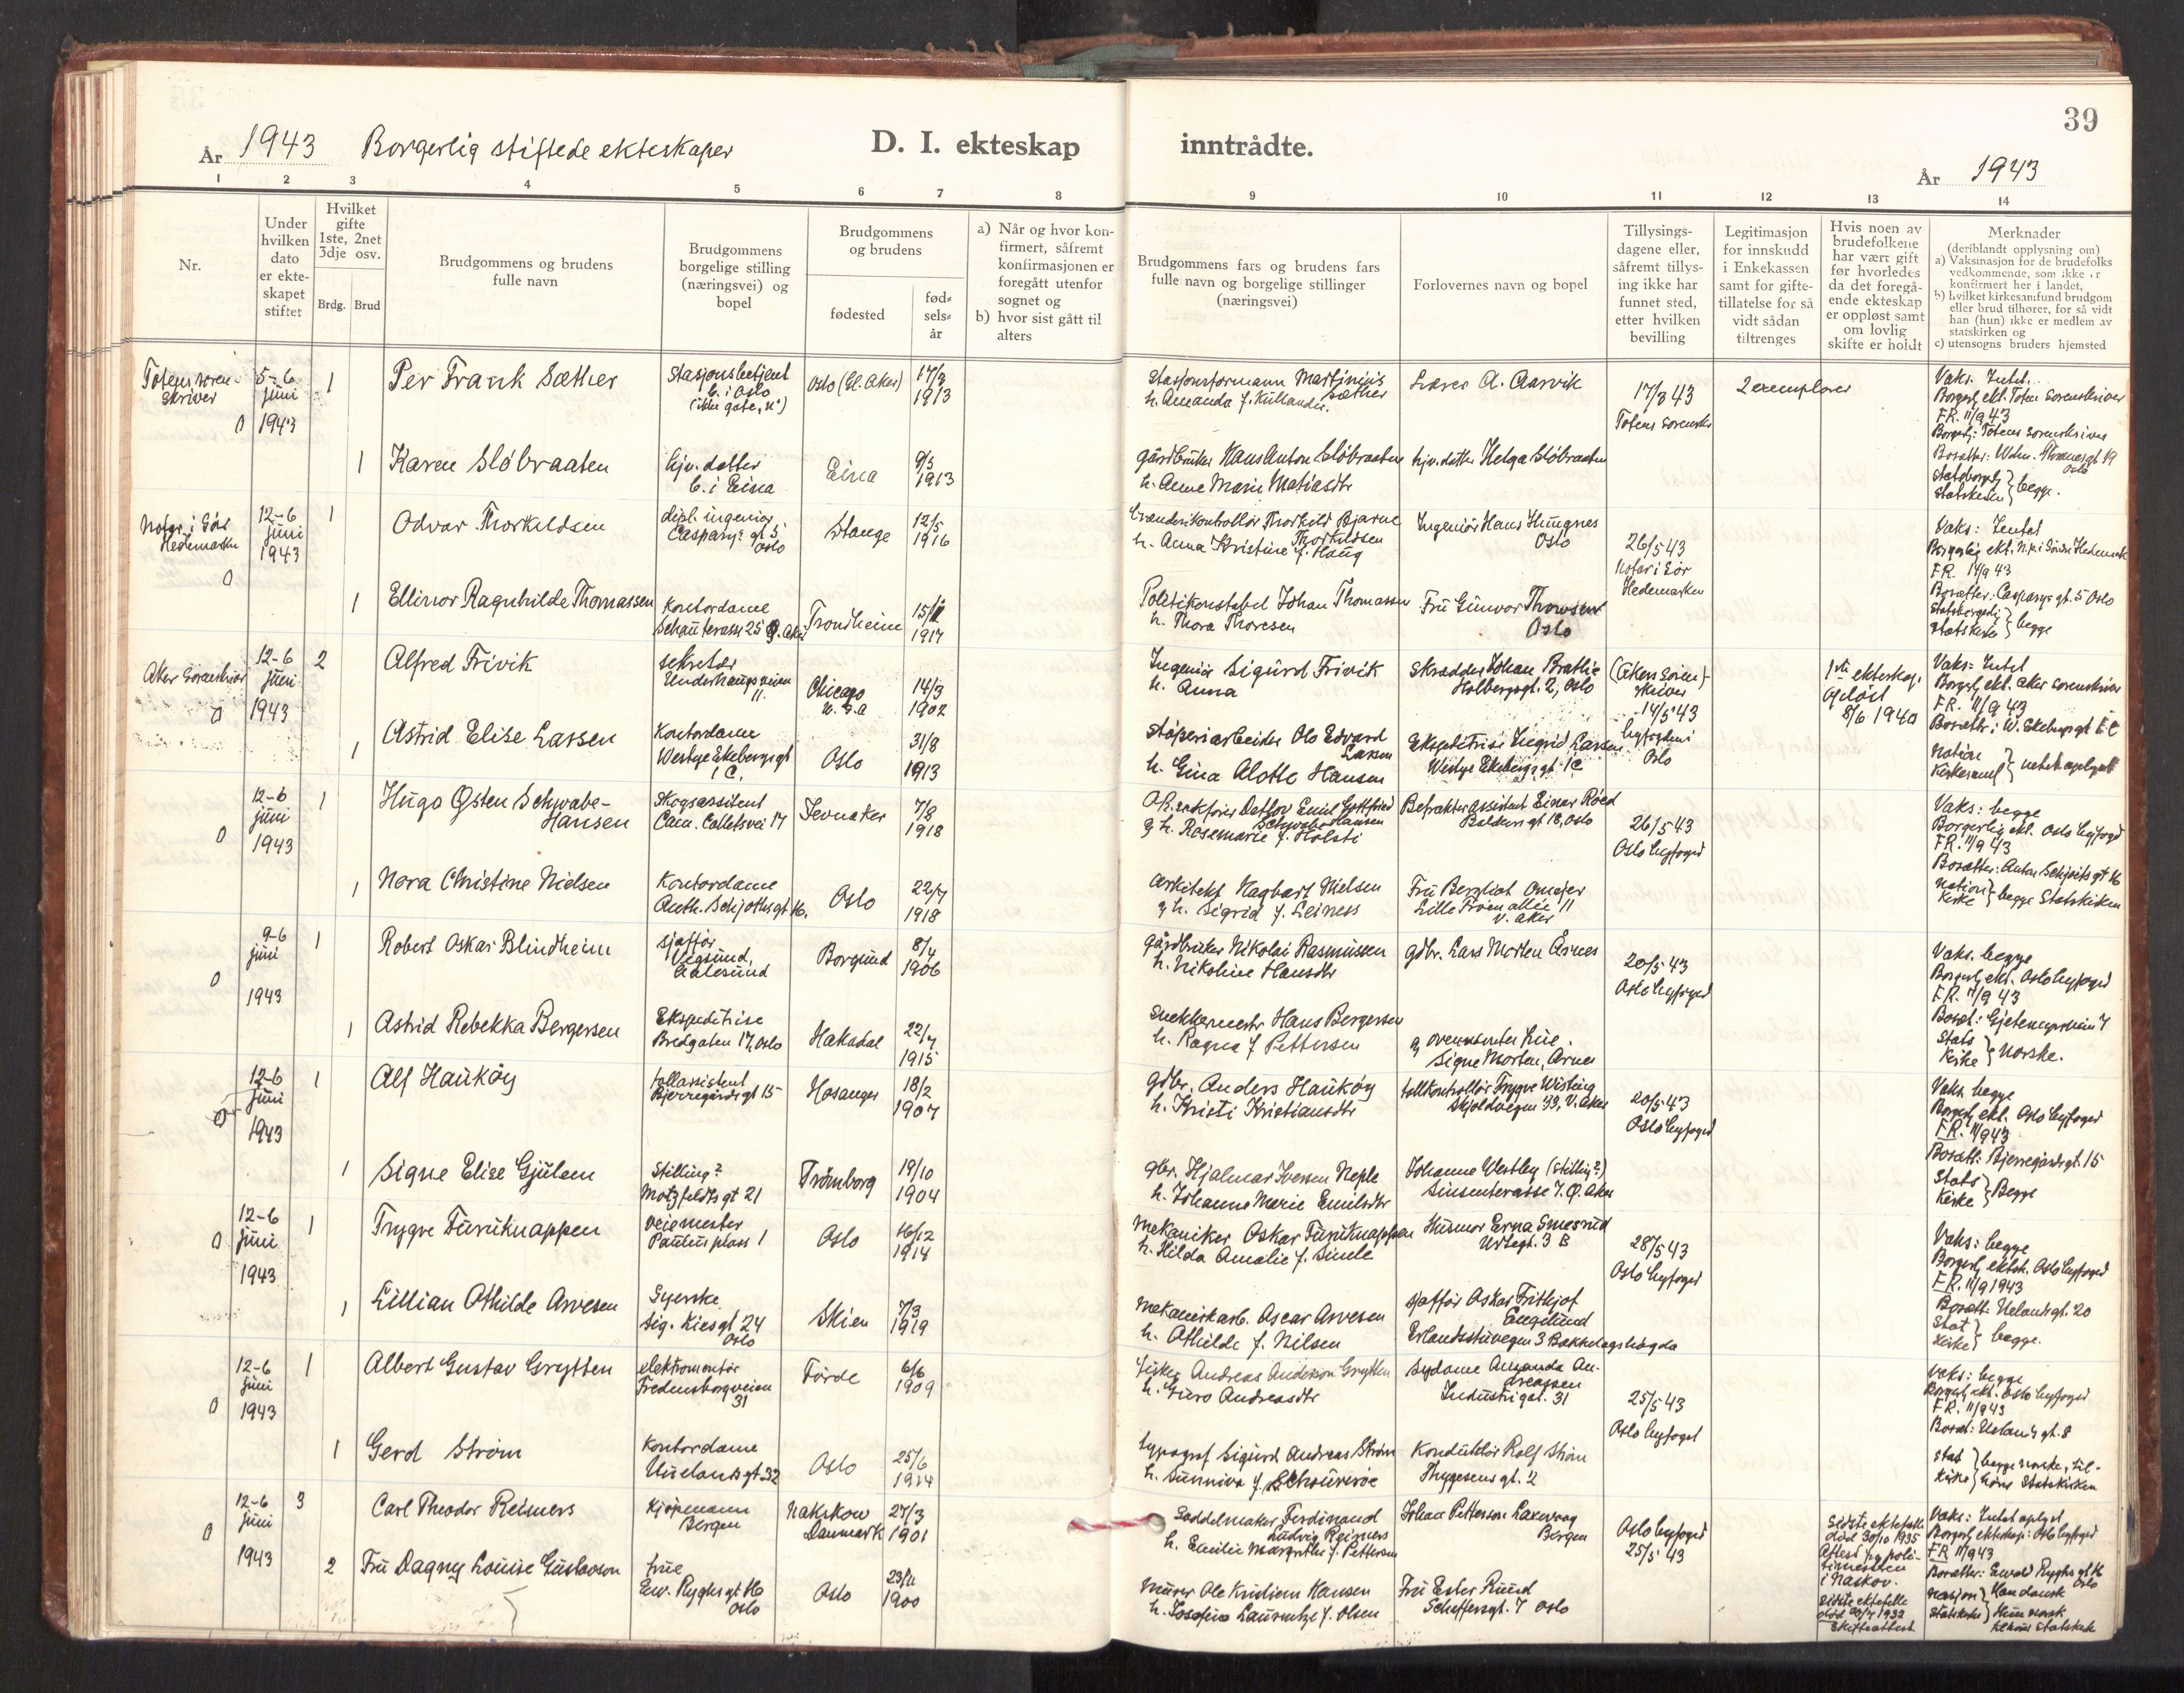 39
År 1943 Borgerlig stiftede ekteskaper D. I. ekteskap inntrådte.
År 1943
1 2 3 4 5 6 7 8 9 10 11 12 13 14
Nr.
Under
hvilken
dato
er ekte-
skapet
stiftet
Hvilket
gifte
1ste, 2net
3dje osv.
Brdg. Brud
Brudgommens og brudens
fulle navn
Brudgommens
borgelige stilling
(næringsvei) og
bopel
Brudgommens
og brudens
fødested
fød-
sels-
år
a) Når og hvor kon-
firmert, såfremt
konfirmasjonen er
foregått utenfor
sognet og
b) hvor sist gått til
alters
Brudgommens fars og brudens fars
fulle navn og borgelige stillinger
(næringsvei)
Forlovernes navn og bopel
Tillysings-
dagene eller,
såfremt tillys-
ing ikke har
funnet sted,
etter hvilken
bevilling
Legitimasjon
for innskudd
i Enkekassen
samt for gifte-
tillatelse for så
vidt sådan
tiltrenges
Hvis noen av
brudefolkene
har vært gift
før hvorledes
da det foregå-
ende ekteskap
er oppløst samt
om lovlig
skifte er holdt
Merknader
(deriblandt opplysning om)
a) Vaksinasjon for de brudefolks
vedkommende, som ikke er
konfirmert her i landet,
b) hvilket kirkesamfund brudgom
eller brud tilhører, for så vidt
han (hun) ikke er medlem av
statskirken og
c) utensogns bruders hjemsted
Totens soren-
skriver
5-6
juni
1943
1
Per Frank Sæther
Stasjonsbetjent
b. i Oslo
Oslo (Gl. Aker)
17/3
1913
Stasjonsformann Martinius
Sæther
h. Amanda f. Kullander.
Lærer A. Aarvik
17/3 43
Totens sorenskr
2 exemplarer
Vaks. Intet.
Borgerl. ekt. Toten Sorenskriver
F.R. 11/9 43
Borgerl: Totens Sorenskriver
Bosætter: Wilh. Thranesgt 19
Oslo
Statsborgerl } begge.
Statskirken
1
Karen Sløbraaten
hjv. datter
b. i Eina
Eina
9/5
1913
gårdbruker Hans Anton Sløbraaten
h. Anne Marie Matiasdtr
hjv. datter Helga Sløbraaten
Notar i Sør
Hedemarken
12-6
juni
1943
1
Odvar Thorkildsen
dipl. ingeniør
Casparis gt 5
Oslo
Stange
12/5
1916
Brenderikontrollør Thorkild Bjarne
Thorkildsen
h. Anna Kristine f. Haug
Ingeniør Hans Hungnes
Oslo
26/5 43
Notar i Sør
Hedemarken
Vaks: Intet
F.R. 14/9 43
Bosætter: Casparis gt. 5 Oslo
Statsborgerl } begge
Statskirke
1
Ellinor Ragnhilde Thomassen
Kontordame
Schauterasse 25 Ø. Aker
Trondheim
1917
Politikonstabel Johan Thomassen
h. Thora Thoresen
Fru Gunvor Thowsen
Oslo
Aker Sorenskriver
12-6
juni
1943
2
Alfred Frivik
sekretær
Underhaugsveien
11
Chicago
U.S.A
14/3
1902
Ingeniør Sigurd Frivik
h. Anna
Skredder Johan Brathe
Holbergsgt. 2, Oslo
(Akers Soren)-
skriver
14/5 43
byfogden i
Oslo
1ste ekteskap.
opløst
8/6 1940
Vaks: Intet
Borgerl. ekt. Aker sorenskriver
F.R. 11/9 43
Bosætter: W. Ekebergsgt 1 C
Nation } intet oplyst
Kirkesamf
1
Astrid Elise Larsen
Kontordame
Westye Ekebergsgt
1 C.
Oslo
31/8
1913
Støperiarbeider Ole Edvard
Larsen
h. Gina Alotte Hansen
Ekspeditrise Ingrid Larsen
Westye Ekebergsgt 1C
12-6
juni
1943
1
Hugo Østen Schwabe-
Hansen
Skogsassistent
Cam. Colletsvei 17
Jevnaker
7/8
1918
O.R. sakfører Detlov Emil Gottfried
Schwabe Hansen
g h. Rosemarie f. Holsti
Befrakter assistent Einar Røed
Baldersgt 18, Oslo
26/5 43
Oslo byfoged
Vaks: begge
Borgerlig ekt. Oslo byfoged
F.R. 11/9 43
Bosætter: Anton Schjøtsgt 16
Nation } begge Statskirken
Kirke
1
Nora Christine Nielsen
Kontordame
Anth. Schjøthsgt 16.
Oslo
22/7
1918
Arkitekt Hagbart Nielsen
g h. Sigrid f. Leiness
Fru Bergliot Omejer
Lille Frøens allé 11
V. Aker
9-6
juni
1943
1
Robert Oskar Blindheim
sjaffør
Vegsund,
Aalesund
Borgund
8/4
1906
gårdbruker Nikolai Rasmussen
h. Nikoline Hansdtr
gdbr. Lars Morten Åsnes
20/5 43
Oslo byfoged
Vaks. begge
Borgerl. ekt. Oslo byfoged
F.R. 11/9 43
Stats } Norske.
Kirke
1
Astrid Rebekka Bergersen
Ekspeditrise
Bredgaten 17, Oslo
Hakadal
22/7
1915
Snekkermestr Hans Bergersen
h. Ragna f Pettersen
12-6
juni
1943
1
Alf Haukøy
tollassistent
Bjerregårdsgt 15
Hosanger
18/2
1907
gdbr. Anders Haukøy
h. Kristi Kristiansdtr
tollkontrollør Trygve Wisting
Skjoldvegen 33, V. Aker
20/5 43
Oslo byfoged
Vaks. begge
Borgerl. ekt. Oslo byfoged
F.R. 11/9 43
Bosætt: Bjerregårdsgt. 15
Stats } Begge
Kirke
1
Signe Elise Gjulem
Stilling?
Motzfeldtsgt 21
Trømborg
19/10
1904
gbr. Hjalmar Iversen Neple
h. Johanne Marie Emilsdtr
Johanne Westby (stilling?)
Sinsenterasse 7. Ø. Aker
12-6
juni
1943
1
Trygve Furuknappen
veiemester
Paulus plass 1
Oslo
16/12
1914
Mekaniker Oskar Furuknappen
h. Hilda Amalie f. Sinele
Husmor Erna Smesrud
Urtegt. 3 B
28/5 43
Oslo byfoged
Vaks: begge
Borgerl. ektsk. Oslo byfoged
F.R. 11/9 1943
Bosætt: Uelandsgt. 20
Stat } begge.
Kirke
1
Lillian Othilde Arvesen
Syerske
Sig. Liesgt 24
Oslo
Skien
7/3
1919
Mekanikarb. Oscar Arvesen
h. Othilde f. Nilsen
sjaffør Oskar Frithjof
Englund
Erlandstuvegen 3 Bekkelagshøgda
12-6
juni
1943
1
Albert Gustav Grytten
elektromontør
Fredensborgveien
31
Førde
6/6
1909
fisker Andreas Anderson Grytten
h. Guro Andreasdtr
sydame Amanda An-
dreassen
Industrigat. 31
25/5 43
Oslo byfoged
Vaks: begge
Borgerl. ekt. Oslo byfoged
F.R. 11/9 43
Bosæt: Uelandsgt. 8
stat } begge norske, til-
Kirke } hører Statskirken
1
Gerd Strøm
Kontordame
Uuelandsgt 32
Oslo
25/6
1914
typograf Sigurd Andreas Strøm
h. Sunniva f.
Konduktør Rolf Strøm
Thygesens gt. 2
12-6
juni
1943
3
Carl Theodor Reimers
Kjøpmann
Bergen
Nakskow
Danmark
27/3
1901
Saddelmaker Ferdinand
Ludvig Reimers
h. Emilie Margrethe f. Petterson
Johan Petterson Laxevaag
Bergen
Oslo byfoged
25/5 43
Sidste ektefælle
død 30/10 1935
Attest fra poli-
timesteren
i Naskov.
Sidste ektefelle
død 20/7 1932
Skifteattest
Vaks: Intet oplyst
Borgerl. ekteskap: Oslo byfoged
F.R 11/9 43
Bosætter: Ewald Ryghs gt 16
Oslo
nasjon } Han dansk
Statskirke } Hun norsk
2
Fru Dagny Louise Gustavson
frue
Ew. Ryghsgt 16
Oslo
Oslo
23/11
1900
Murer Ole Kristian Hansen
h. Josefine Laurentze f. Olsen
Fru Ester Ruud
Scheffersgt. 7 Oslo